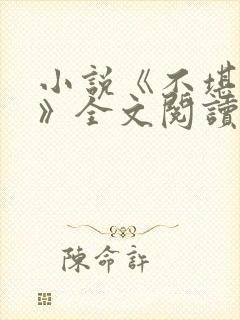 小說《不堪
》全文閱讀
陳命許